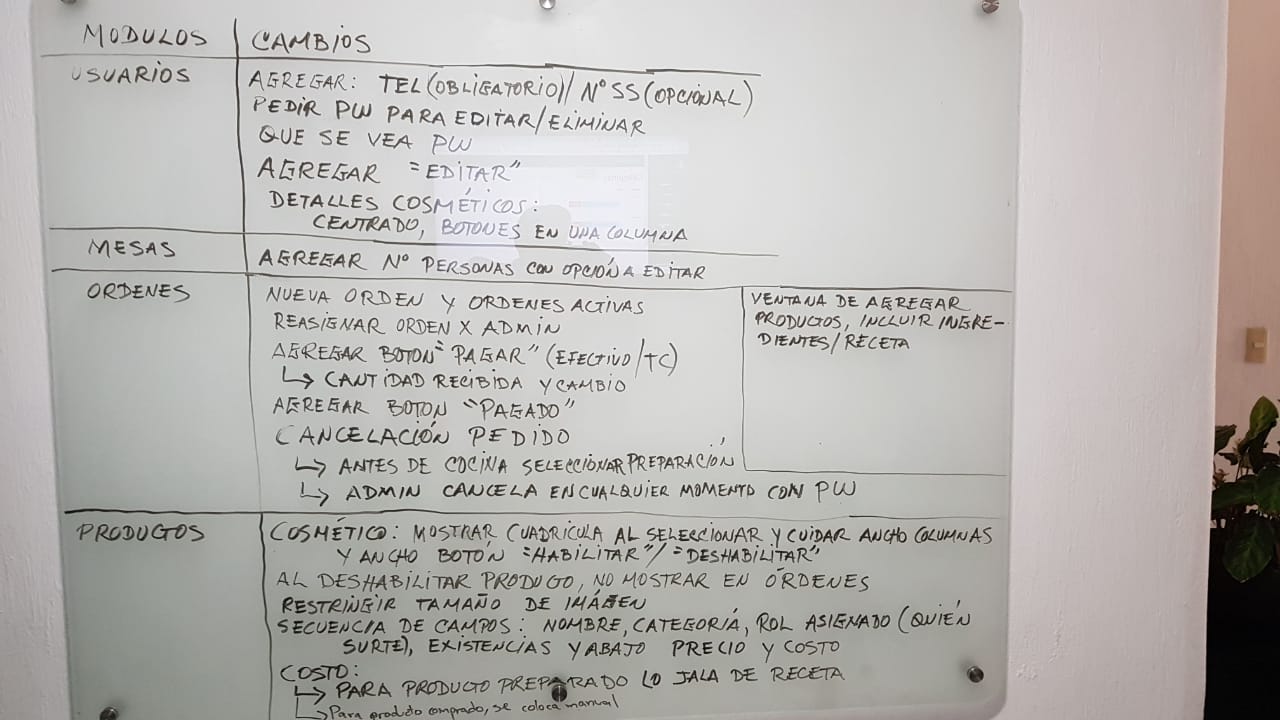 MODULOS CAMBIOS
USUARIOS AGREGAR: TEL (OBLIGATORIO) / Nº SS (OPCIONAL)
PEDIR PW PARA EDITAR/ELIMINAR
QUE SE VEA PW
AGREGAR "EDITAR"
DETALLES COSMÉTICOS:
CENTRADO, BOTONES EN UNA COLUMNA
MESAS AGREGAR Nº PERSONAS CON OPCIÓN A EDITAR
ORDENES NUEVA ORDEN Y ORDENES ACTIVAS
REASIGNAR ORDEN X ADMIN
AGREGAR BOTON "PAGAR" (EFECTIVO/TC)
↳ CANTIDAD RECIBIDA Y CAMBIO
AGREGAR BOTON "PAGADO"
CANCELACIÓN PEDIDO
↳ ANTES DE COCINA SELECCIONAR PREPARACIÓN
↳ ADMIN CANCELA EN CUALQUIER MOMENTO CON PW
VENTANA DE AGREGAR
PRODUCTOS, INCLUIR INGRE-
DIENTES/RECETA
PRODUCTOS COSMÉTICO: MOSTRAR CUADRÍCULA AL SELECCIONAR Y CUIDAR ANCHO COLUMNAS
Y ANCHO BOTÓN "HABILITAR"/"DESHABILITAR"
AL DESHABILITAR PRODUCTO, NO MOSTRAR EN ÓRDENES
RESTRINGIR TAMAÑO DE IMÁGEN
SECUENCIA DE CAMPOS: NOMBRE, CATEGORÍA, ROL ASIGNADO (QUIÉN
SURTE), EXISTENCIAS Y ABAJO PRECIO Y COSTO
COSTO:
↳ PARA PRODUCTO PREPARADO LO JALA DE RECETA
↳ Para producto comprado, se coloca manual